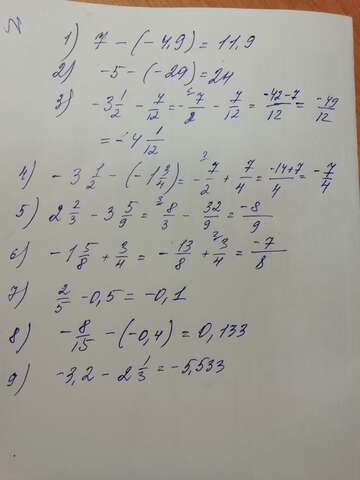 1) 7 - (-4,9) = 11,9
2) -5 - (-29) = 24
3) -3 1/2 - 7/12 = - 7/2 - 7/12 = -42-7/12 = -49/12
= -4 1/12
4) -3 1/2 - (-1 3/4) = - 7/2 + 7/4 = -14+7/4 = -7/4
5) 2 2/3 - 3 5/9 = 8/3 - 32/9 = -8/9
6) -1 5/8 + 3/4 = - 13/8 + 3/4 = -7/8
7) 2/5 - 0,5 = -0,1
8) -8/15 - (-0,4) = 0,133
9) -3,2 - 2 1/3 = -5,533